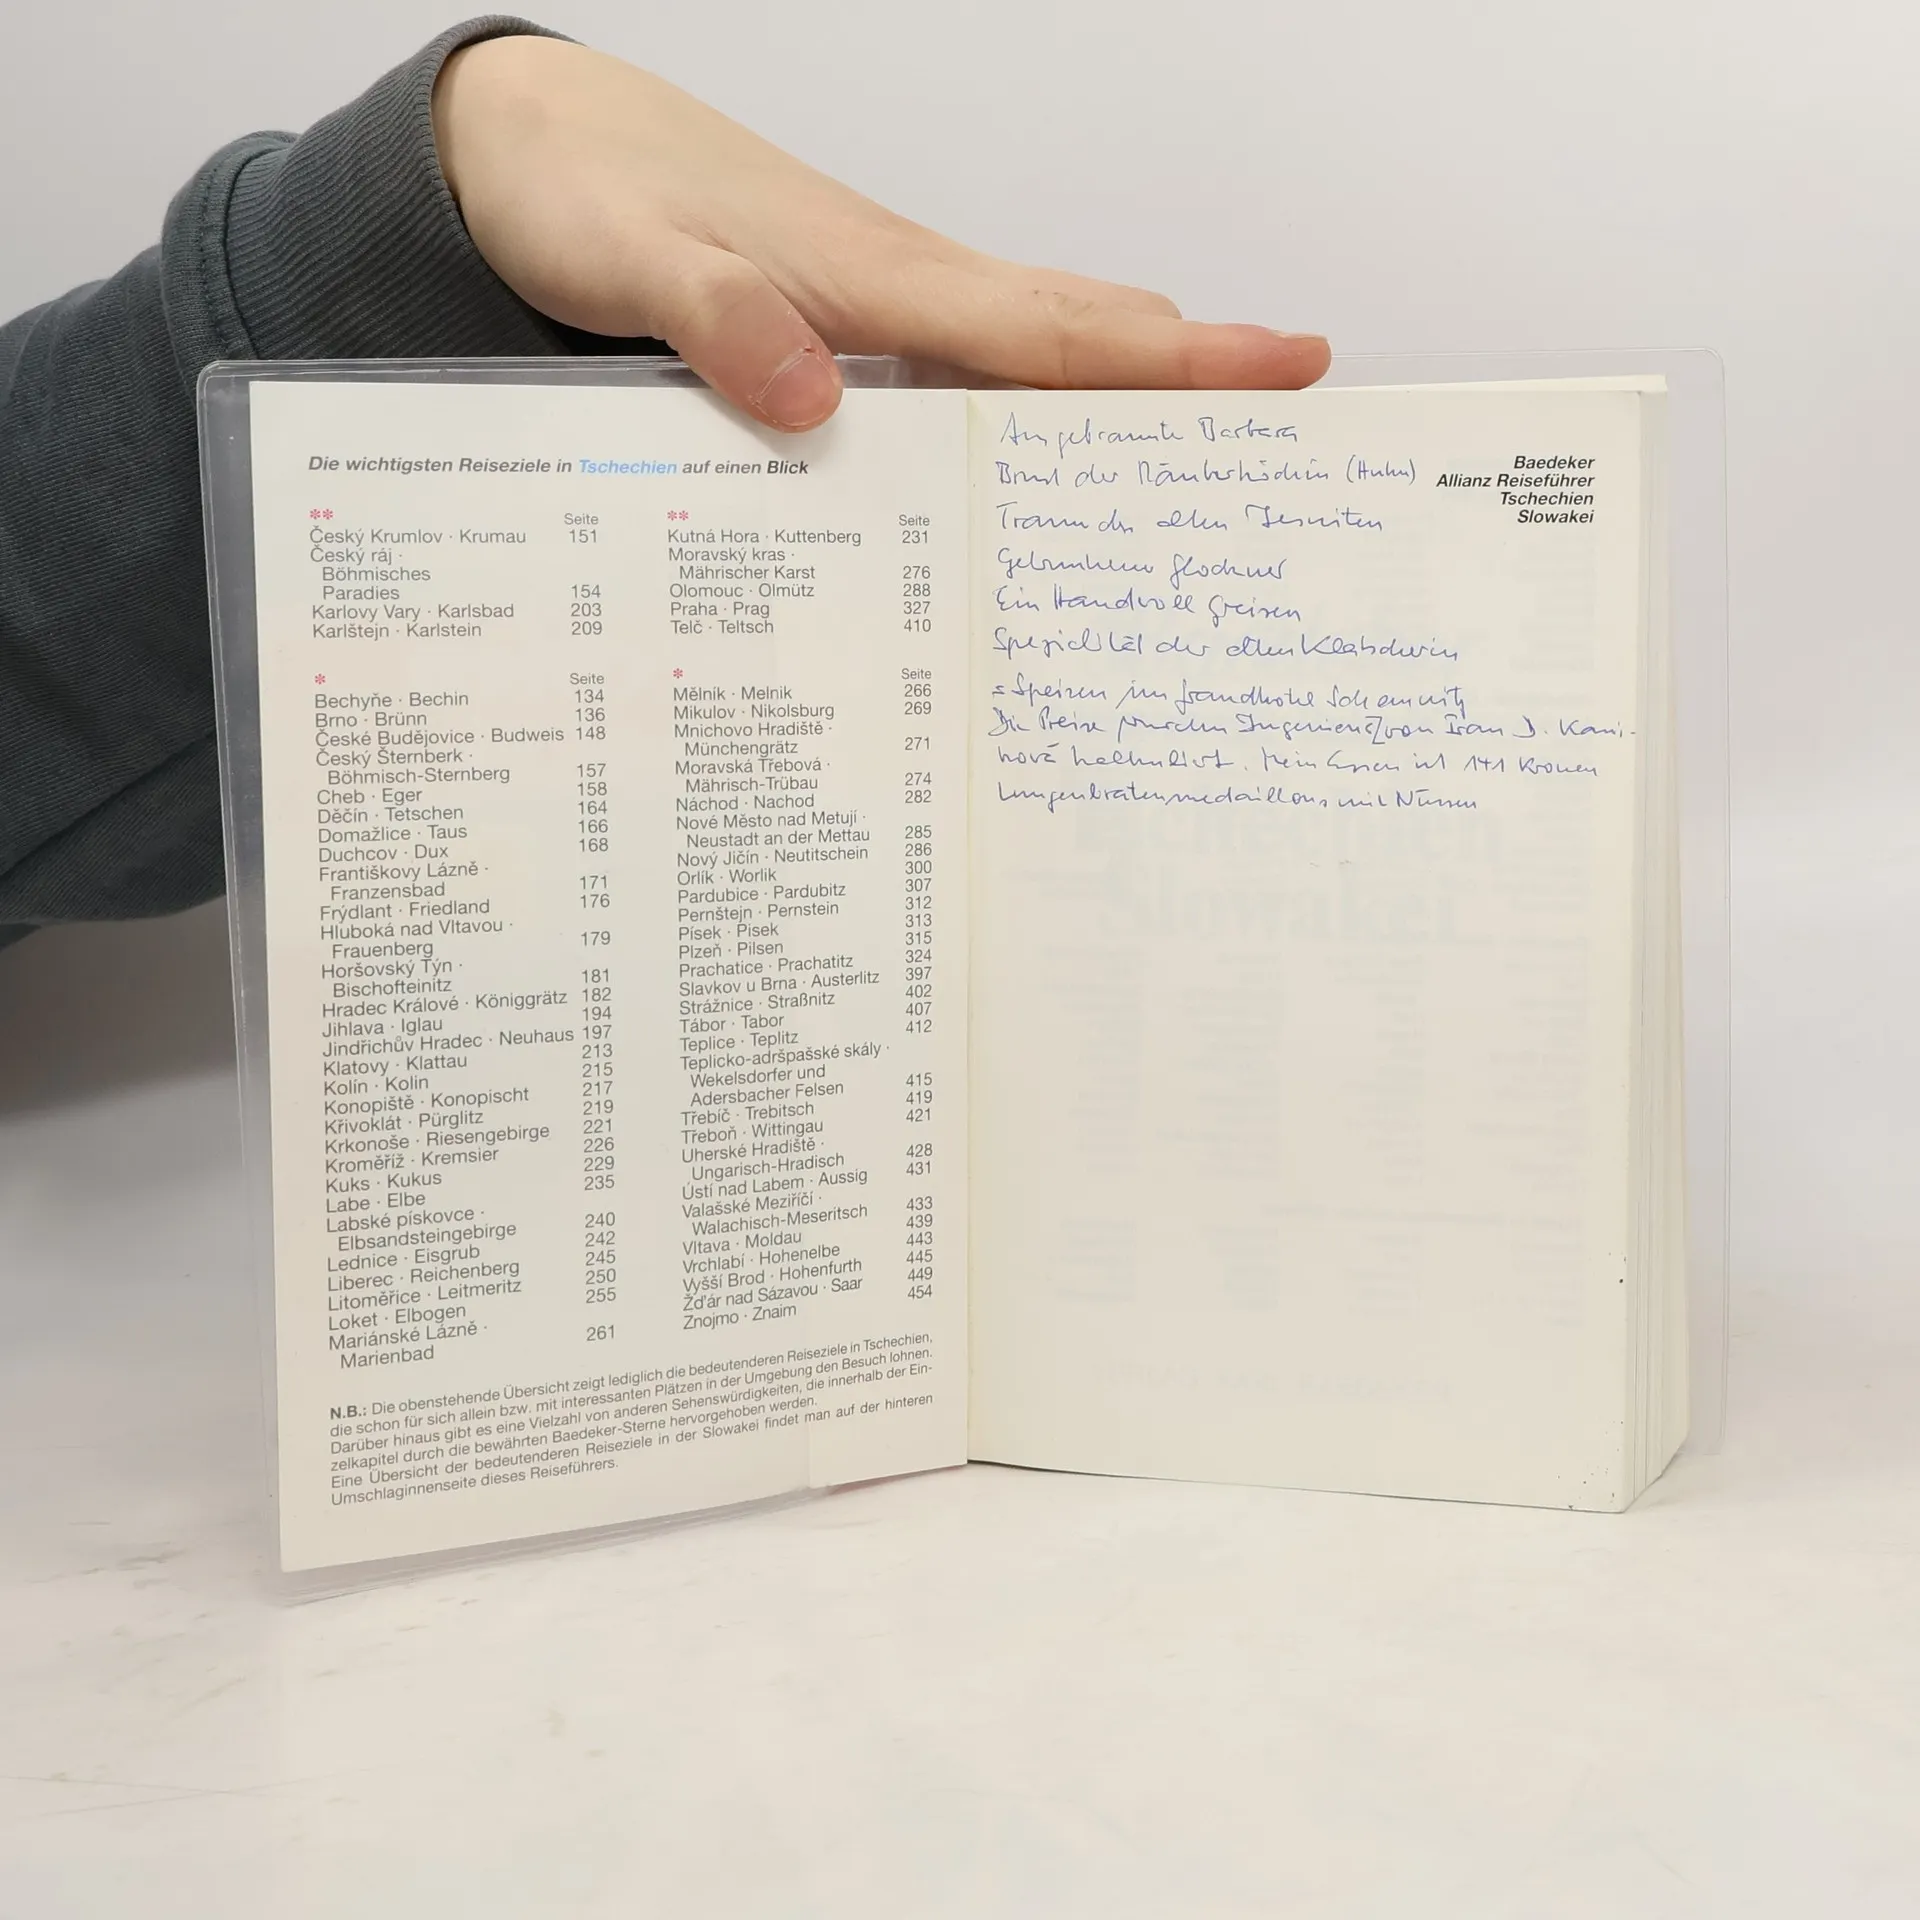 Die wichtigsten Reiseziele in Tschechien auf einen Blick
** Seite
Český Krumlov · Krumau 151
Český ráj ·
Böhmisches
Paradies 154
Karlovy Vary · Karlsbad 203
Karlštejn · Karlstein 209
** Seite
Kutná Hora · Kuttenberg 231
Moravský kras ·
Mährischer Karst 276
Olomouc · Olmütz 288
Praha · Prag 327
Telč · Teltsch 410
* Seite
Bechyňe · Bechin 134
Brno · Brünn 136
České Budějovice · Budweis 148
Český Šternberk ·
Böhmisch-Sternberg 157
Cheb · Eger 158
Děčín · Tetschen 164
Domažlice · Taus 166
Duchcov · Dux 168
Františkovy Lázně ·
Franzensbad 171
Frýdlant · Friedland 176
Hluboká nad Vltavou ·
Frauenberg 179
Horšovský Týn ·
Bischofteinitz 181
Hradec Králové · Königgrätz 182
Jihlava · Iglau 194
Jindřichův Hradec · Neuhaus 197
Klatovy · Klattau 213
Kolín · Kolin 215
Konopiště · Konopischt 217
Křivoklát · Pürglitz 219
Krkonoše · Riesengebirge 221
Kroměříž · Kremsier 226
Kuks · Kukus 229
Labe · Elbe 235
Labské pískovce ·
Elbsandsteingebirge 240
Lednice · Eisgrub 242
Liberec · Reichenberg 245
Litoměřice · Leitmeritz 250
Loket · Elbogen 255
Mariánské Lázně ·
Marienbad 261
* Seite
Mělník · Melnik 266
Mikulov · Nikolsburg 269
Mnichovo Hradiště ·
Münchengrätz 271
Moravská Třebová ·
Mährisch-Trübau 274
Náchod · Nachod 282
Nové Město nad Metují ·
Neustadt an der Mettau 285
Nový Jičín · Neutitschein 286
Orlík · Worlik 300
Pardubice · Pardubitz 307
Pernštejn · Pernstein 312
Písek · Pisek 313
Plzeň · Pilsen 315
Prachatice · Prachatitz 324
Slavkov u Brna · Austerlitz 397
Strážnice · Straßnitz 402
Tábor · Tabor 407
Teplice · Teplitz 412
Teplicko-adršpašské skály ·
Wekelsdorfer und
Adersbacher Felsen 415
Třebíč · Trebitsch 419
Třeboň · Wittingau 421
Uherské Hradiště ·
Ungarisch-Hradisch 428
Ústí nad Labem · Aussig 431
Valašské Meziříčí ·
Walachisch-Meseritsch 433
Vltava · Moldau 439
Vrchlabí · Hohenelbe 443
Vyšší Brod · Hohenfurth 445
Žďár nad Sázavou · Saar 449
Znojmo · Znaim 454
N.B.: Die obenstehende Übersicht zeigt lediglich die bedeutenderen Reiseziele in Tschechien,
die schon für sich allein bzw. mit interessanten Plätzen in der Umgebung den Besuch lohnen.
Darüber hinaus gibt es eine Vielzahl von anderen Sehenswürdigkeiten, die innerhalb der Ein-
zelkapitel durch die bewährten Baedeker-Sterne hervorgehoben werden.
Eine Übersicht der bedeutenderen Reiseziele in der Slowakei findet man auf der hinteren
Umschlaginnenseite dieses Reiseführers.
Angebrannte Barbara
Brust der Räuberköchin (Huhn)
Traum des alten Jesuiten
Betrunkener Glockner
Ein Handvoll Greisen
Spezialität der alten Klatscherin
= Speisen im Grandhotel Schemnitz
Die Preise wurden von Frau D. Kani-
nová kalkuliert. Mein Essen ist 141 Kronen
Lungenbratenmedaillons mit Nüssen
Baedeker
Allianz Reiseführer
Tschechien
Slowakei